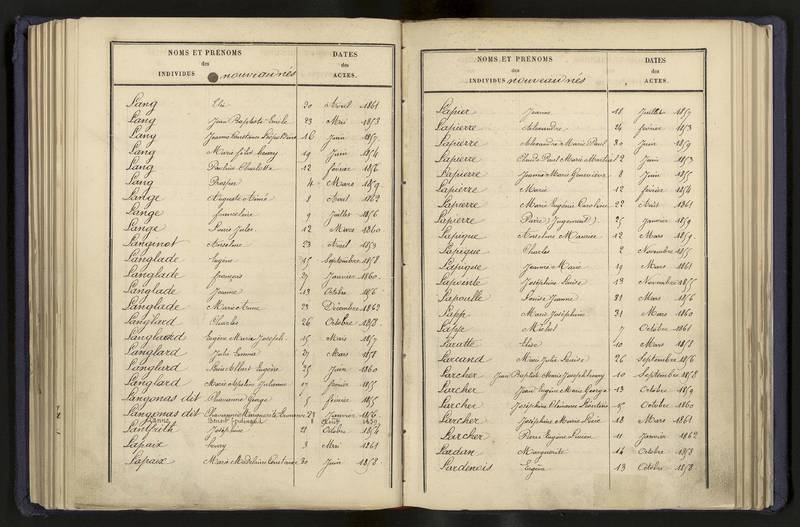 NOMS ET PRÉNOMS
des
INDIVIDUS nouveau nés
DATES
des
ACTES.
Lang Elie 20 Avril 1861
Lang Jean Baptiste Emile 23 Mai 1853
Lang Jeanne Constance 16 Juin
Lang Marie 19 Juin 1854
Lang Pauline Charlotte 12 février 1856
Lang Prosper 4 Mars 1859
Lange Auguste Aimé 8 Avril 1862
Lange 9 Juillet 1856
Lange Louis Jules 12 Mars 1860
Langenot Anselme 23 Avril 1853
Langlade Eugène 15 Septembre 1858
Langlade françois 27 Janvier 1860
Langlade Jeanne 13 Octobre 1856
Langlade Marie Anne 23 Décembre 1862
Langlard Charles 26 Octobre 1858
Langlard Eugène Marie Joseph 15 Mars 1857
Langlard Julie Emma 27 Mars 1858
Langlard Albert Eugène 25 Juin 1860
Langlard Marie Julienne 17 février 1855
Langonas dit 5 février 1855
Langonas dit Marguerite 21 Janvier 1856
Lanfuth Joséphine 21 Octobre
Lapaix henry 3 Mai 1861
Lapaix Marie Madeleine Constance 30 Juin 1858
NOMS ET PRÉNOMS
des
INDIVIDUS nouveau nés
DATES
des
ACTES.
Lapier Jeanne 18 Juillet 1857
Lapierre Alexandre 24 février 1853
Lapierre Alexandre Marie Paul 30 Juin 1859
Lapierre Claude Paul Marie 12 Juin 1853
Lapierre Jeanne Marie Geneviève 8 Juin 1855
Lapierre Marie 12 février 1854
Lapierre Marie Eugénie Caroline 22 Août 1861
Lapierre Pierre (Jugement) 25 Janvier 1859
Lapique Anselme Maurice 12 Mars 1859
Lapique Charles 2 Novembre 1855
Lapique Jeanne Marie 19 Mars 1861
Lapointe Joséphine Louise 13 Novembre 1855
Lapoulle Louise Jeanne 31 Mars 1856
Lapp Marie Joséphine 31 Mars 1860
Lapp Michel 7 Octobre 1861
Laratte Elise 10 Mars 1858
Larcand Marie Julie Louise 26 Septembre 1856
Larcher Jean Baptiste Marie Joseph henry 10 Septembre 1858
Larcher Jean Eugène Marie George 13 Octobre 1859
Larcher Joséphine 15 Octobre 1860
Larcher Joséphine Marie 18 Mars 1861
Larcher Pierre Eugène Lucien 11 Janvier 1862
Lardan Marguerite 14 Octobre 1853
Lardenois Eugène 13 Octobre 1858